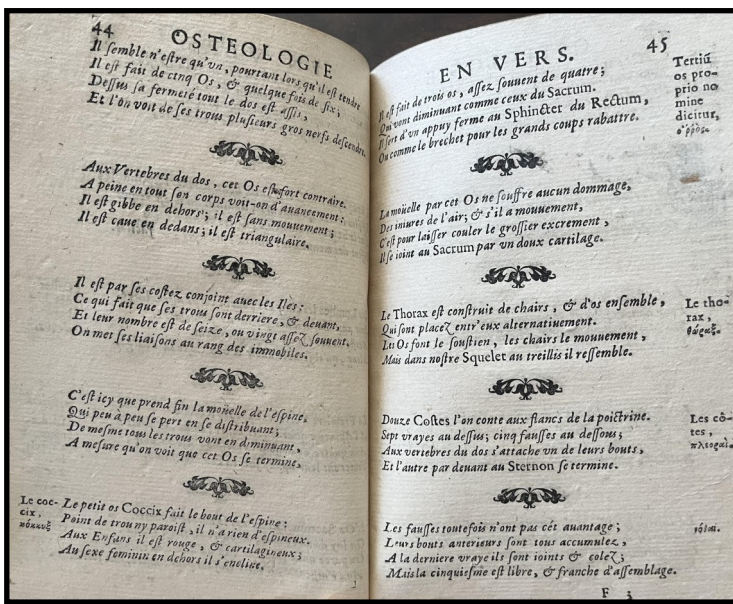 44
OSTEOLOGIE
Il semble n'estre qu'vn, pourtant lors qu'il est tendre
Il est fait de cinq Os, & quelque fois de six;
Dessus sa fermeté tout le dos est assis,
Et l'on voit de ses trous plusieurs gros nerfs descendre.
Aux Vertebres du dos, cet Os est fort contraire.
A peine en tout son corps voit-on d'auancement:
Il est gibbe en dehors; il est sans mouuement;
Il est caue en dedans; il est triangulaire.
Il est par ses costez conjoint auec les Iles;
Ce qui fait que ses trous sont derriere, & deuant,
Et leur nombre est de seize, ou vingt assez souuent.
On met ses liaisons au rang des immobiles.
C'est icy que prend fin la moüelle de l'espine,
Qui peu à peu se pert en se distribuant;
De mesme tous les trous vont en diminuant,
A mesure qu'on voit que cet Os se termine,
Le coc-
cix,
κόκκυξ
Le petit os Coccix fait le bout de l'espine:
Point de trou ny paroist, il n'a rien d'espineux.
Aux Enfans il est rouge, & cartilagineux;
Au sexe feminin en dehors il s'encline.
EN VERS.
45
Il est fait de trois os, assez souuent de quatre;
Qui vont diminuant comme ceux du Sacrum.
Il sert d'vn appuy ferme au Sphincter du Rectum,
Ou comme le brechet pour les grands coups rabattre.
Tertiū
os pro-
prio no
mine
dicitur,
La moüelle par cet Os ne souffre aucun dommage,
Des iniures de l'air; & s'il a mouuement,
C'est pour laisser couler le grossier excrement,
Il se ioint au Sacrum par vn doux cartilage.
Le Thorax est construit de chairs, & d'os ensemble,
Qui sont placez entr'eux alternatiuement.
Lu Os font le soustien, les chairs le mouuement,
Mais dans nostre Squelet au treillis il ressemble.
Le tho-
rax,
θώραξ.
Douze Costes l'on conte aux flancs de la poictrine.
Sept vrayes au dessus; cinq fausses au dessous;
Aux vertebres du dos s'attache vn de leurs bouts,
Et l'autre par deuant au Sternon se termine.
Les cô-
tes,
Les fausses toutefois n'ont pas cét auantage;
Leurs bouts anterieurs sont tous accumulez,
A la derniere vraye ils sont ioints & colez;
Mais la cinquiesme est libre, & franche d'assemblage.
F 3